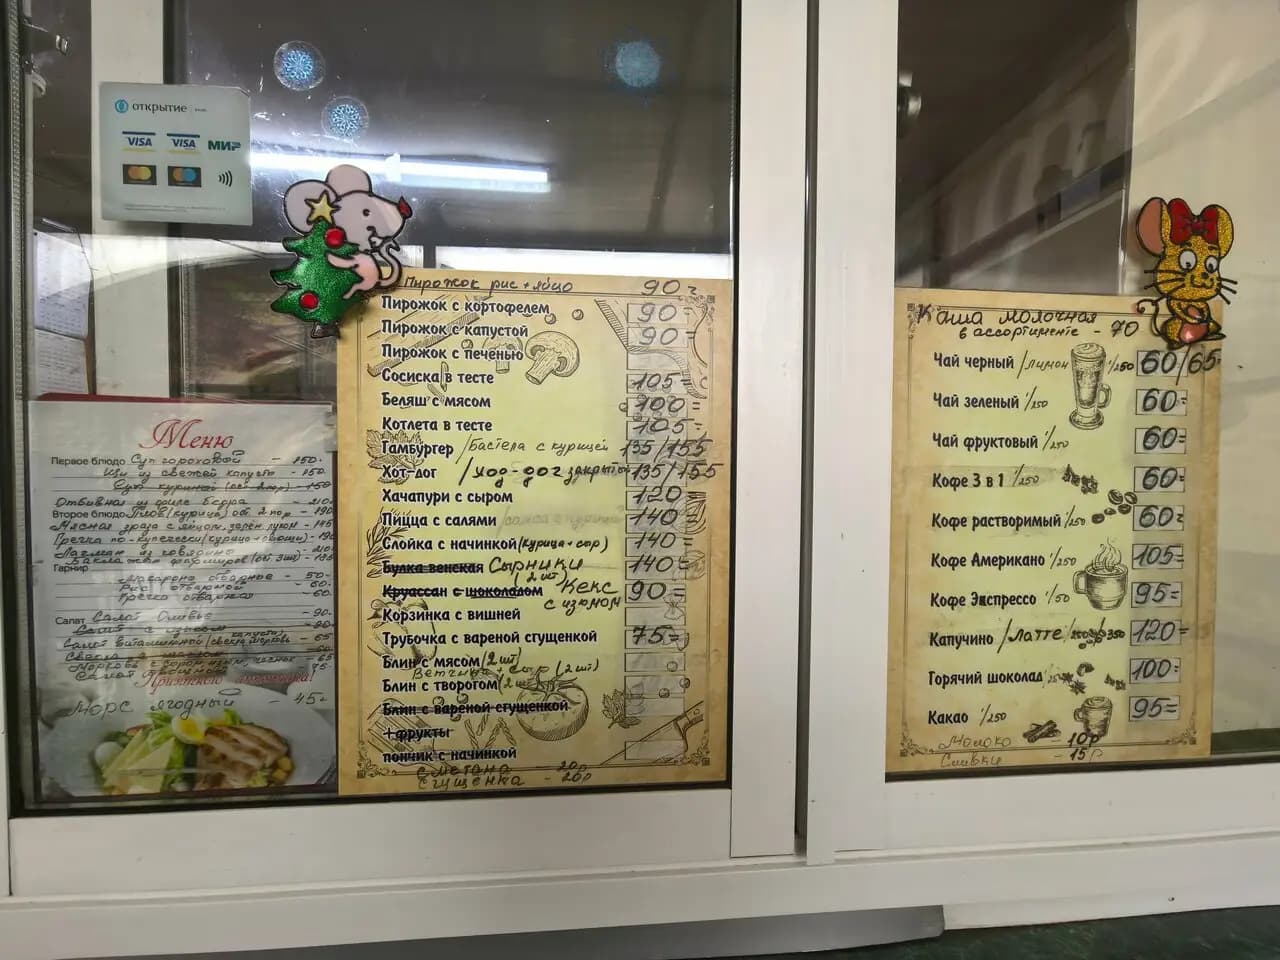 открытие
VISA VISA МИР
Меню
Первое блюдо Суп гороховой - 150-
Щи из свежей капусты - 150
Суп куриный
Отбивная из филе бедра - 210
Второе блюдо Плов (курица)
Гречка по-купечески (курица+овощи)
Лагман из говядины
Гарнир
Макароны отварные - 50-
Рис отварной - 60-
Гречка отварная - 60
Салат Салат Оливье - 90-
Салат витаминный
Приятного аппетита!
Морс ягодный - 45-
Пирожок рис + яйцо 90=
Пирожок с картофелем 90=
Пирожок с капустой 90=
Пирожок с печенью
Сосиска в тесте 105=
Беляш с мясом 100=
Котлета в тесте 105=
Гамбургер /Бастела с курицей 135/155
Хот-дог /ход-дог закрытый 135/155
Хачапури с сыром 120=
Пицца с салями 140=
Слойка с начинкой (курица+сыр) 140=
Булка венская Сырники (2шт) 140=
Круассан с шоколадом Кекс с изюмом 90=
Корзинка с вишней
Трубочка с вареной сгущенкой 75=
Блин с мясом (2шт)
Ветчина + сыр (2шт)
Блин с творогом (2шт)
Блин с вареной сгущенкой
+фрукты
пончик с начинкой
Сметана - 20р
Сгущенка - 20р
Каша молочная
в ассортименте - 70
Чай черный /лимон 1/250 60/65=
Чай зеленый 1/250 60=
Чай фруктовый 1/250 60=
Кофе 3 в 1 1/250 60=
Кофе растворимый 1/250 60=
Кофе Американо 1/250 105=
Кофе Экспрессо 1/50 95=
Капучино /Латте /250 /350 120=
Горячий шоколад 100=
Какао 1/250 95=
Молоко 10р
Сливки - 15р